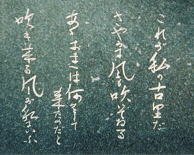 これが私の古里だ
さやかに風も吹いてゐる
あゝおまへは何をして来たのだと
吹き来る風が私にいふ